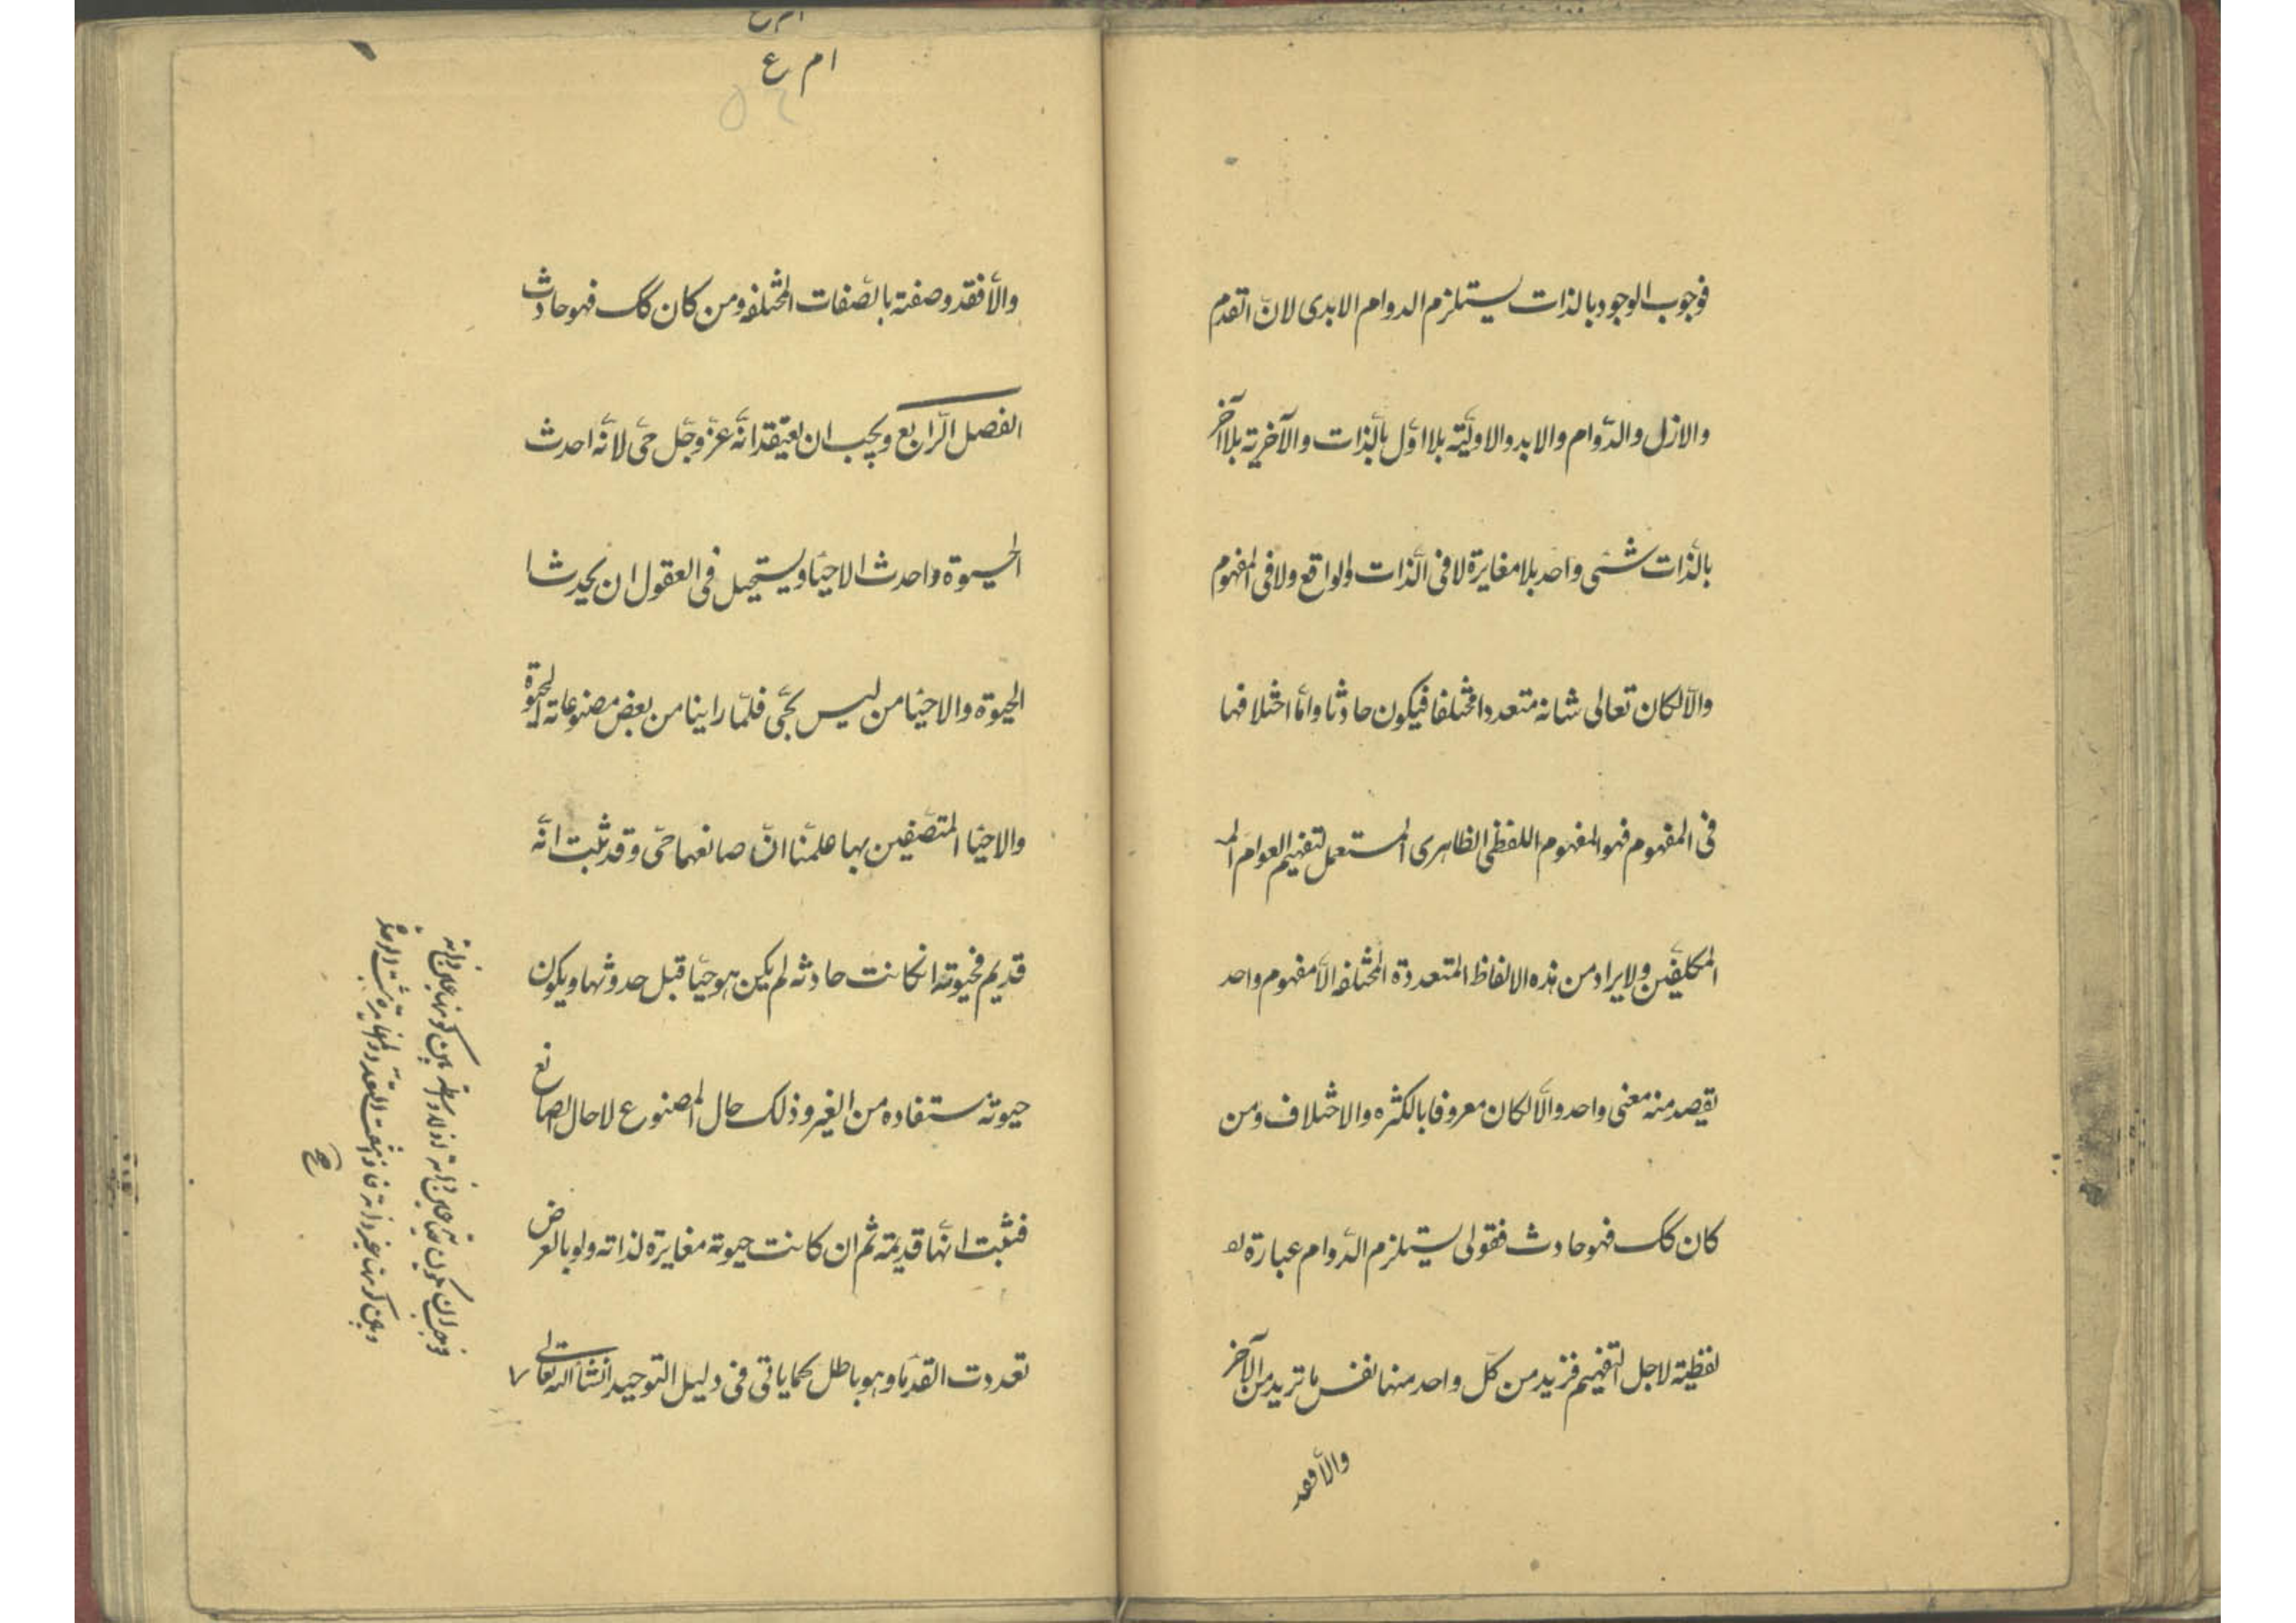 فوجوب الوجود بالذات يستلزم الدوام الابدى لانّ القدم
والازل والدّوام والابد والاوليّة بلا اوّل بالذات والآخرية بلا آخر
بالذات شئى واحد بلا مغايرة لا فى الذات والواقع ولا فى المفهوم
والّا لكان تعالى شانه متعددا مختلفا فيكون حادثا وامّا اختلافها
فى المفهوم فهو المفهوم اللفظى الظاهرى المستعمل لتفهيم العوام
المكلفين ولا يراد من هذه الالفاظ المتعددة المختلفه الّا مفهوم واحد
يقصد منه معنى واحد والّا لكان معروفا بالكثره والاختلاف ومن
كان كك فهو حادث فقولى يستلزم الدّوام عبارة
لفظية لاجل التفهيم فنريد من كلّ واحد منها نفس ما تريد من الآخر
والّا فقد
ام ع
والّا فقد وصفته بالصّفات المختلفه ومن كان كك فهو حادث
الفصل الرّابع ويجب ان يعتقد انّه عزّ وجلّ حىّ لانّه احدث
الحيوة واحدث الاحيا ويستحيل فى العقول ان يحدث ا
الحيوة والاحيا من ليس بحىّ فلمّا راينا من بعض مصنوعاته الحيوة
والاحيا المتّصفين بها علمنا انّ صانعها حىّ وقد ثبت انّه
قديم فحيوته انكانت حادثه لم يكن هو حيّا قبل حدوثها ويكون
حيوته مستفاده من الغير وذلك حال المصنوع لا حال الصانع
فثبت انّها قديمة ثم ان كانت حيوته مغايرة لذاته ولو بالعرض
تعددت القدما وهو باطل كما ياتى فى دليل التوحيد انشا الله تعالى ٧
فوجب ان يكون حيّا بحيوة هى عين ذاته